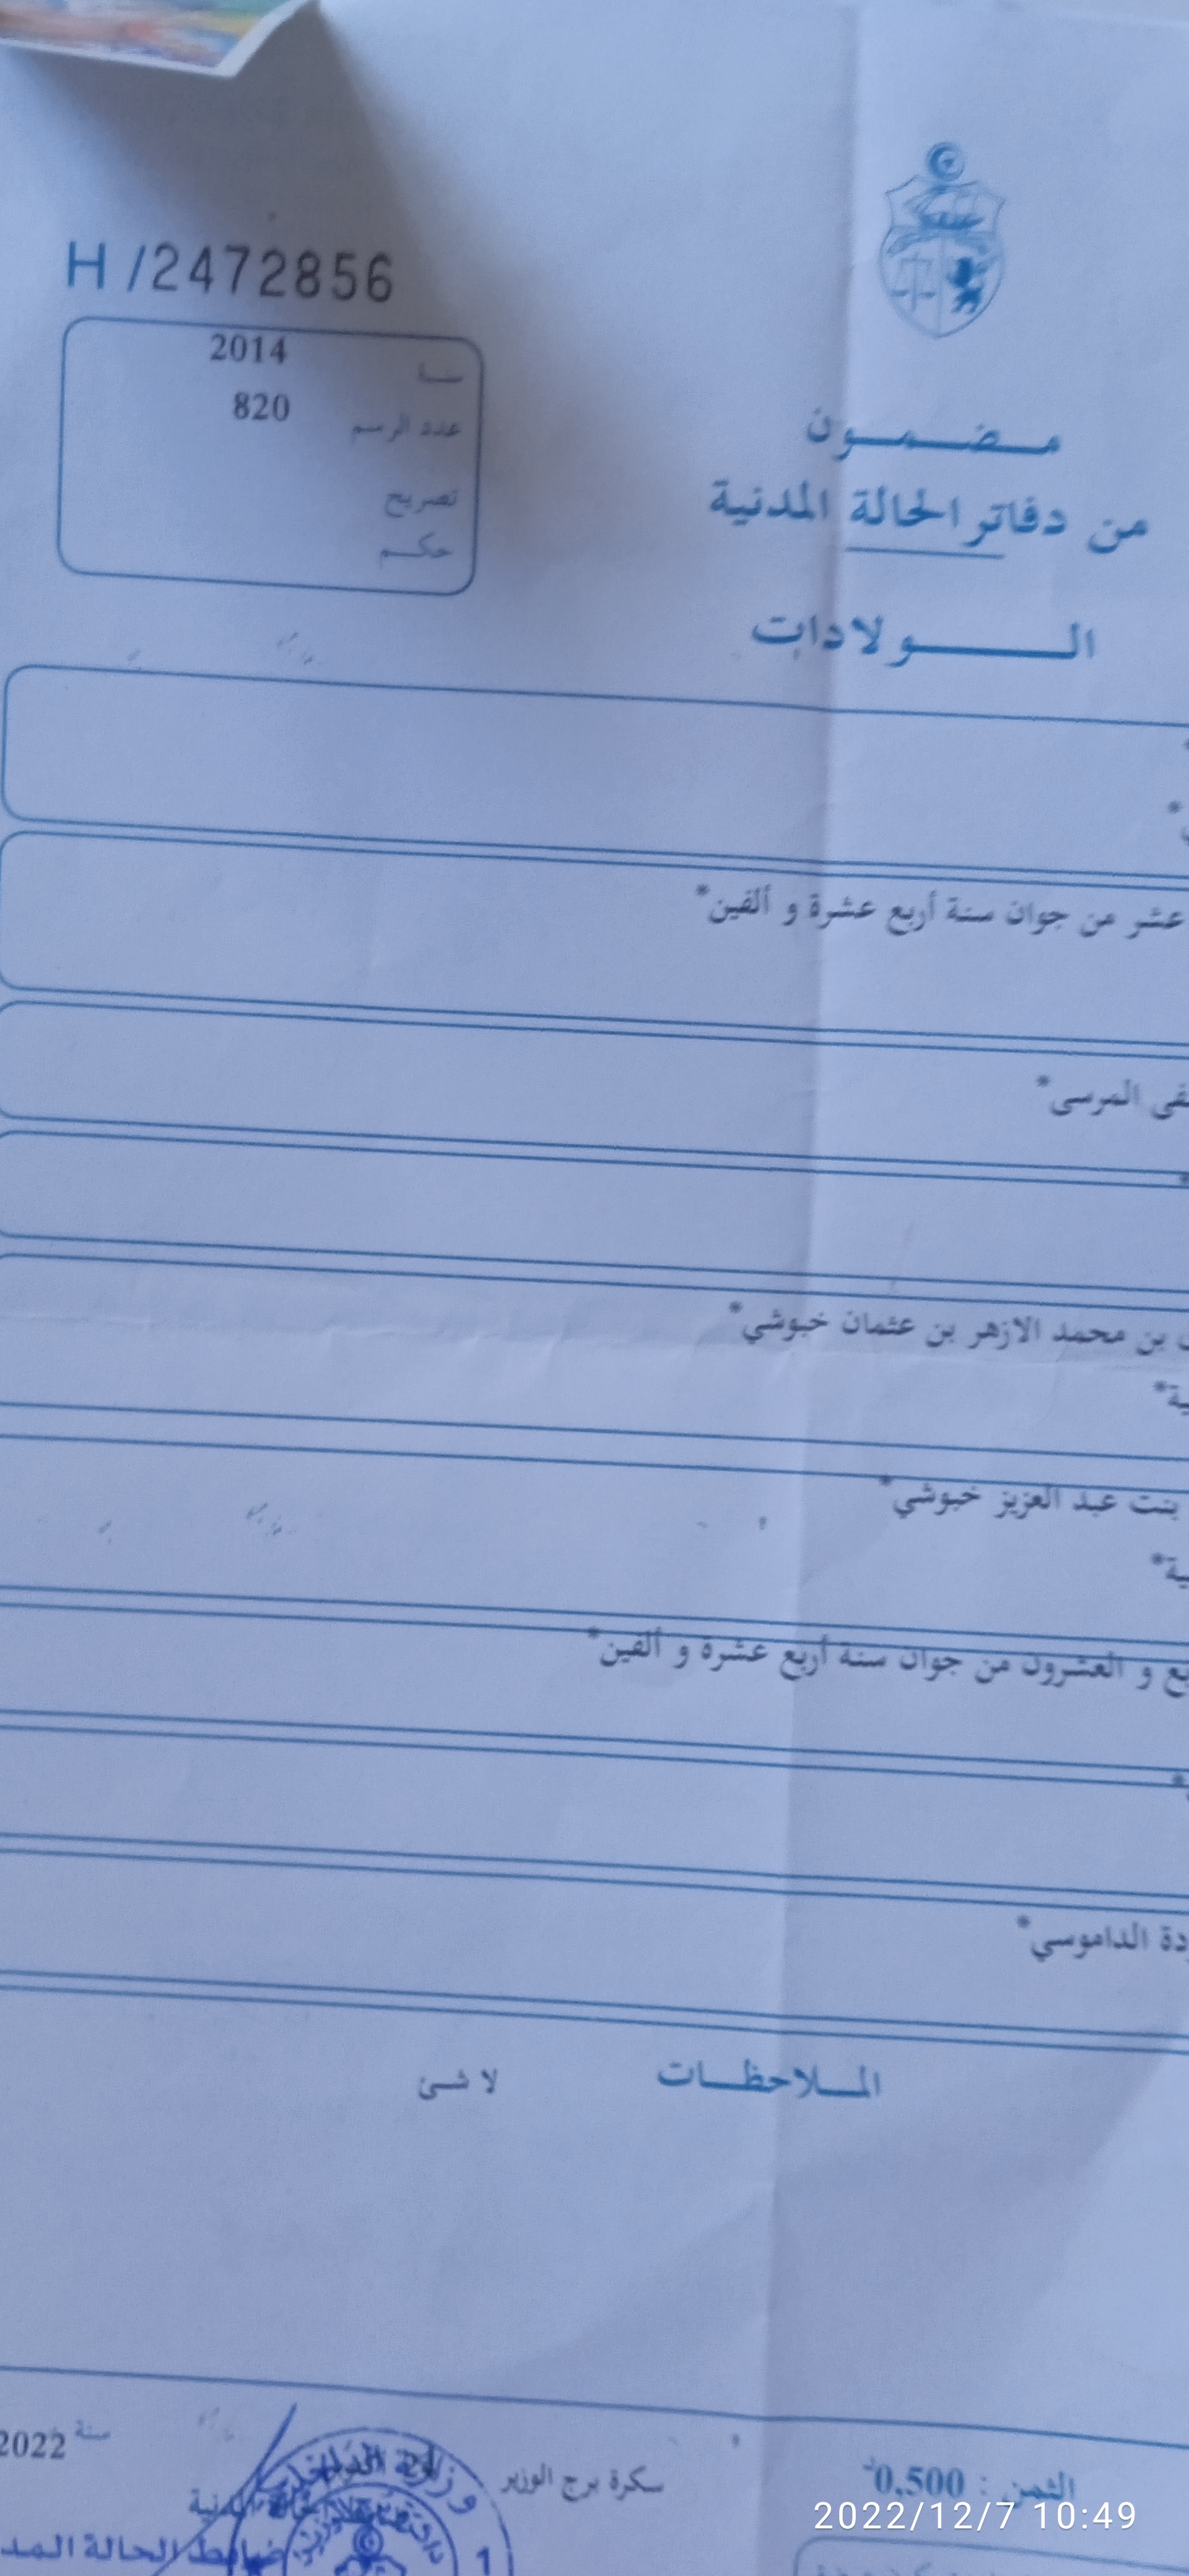 H /2472856
سنة 2014
عدد الرسم 820
تصريح
حكم
مضمون
من دفاتر الحالة المدنية
الولادات
عشر من جوان سنة أربع عشرة و ألفين*
المرسى*
بن محمد الازهر بن عثمان خبوشي*
بنت عبد العزيز خبوشي*
و العشرون من جوان سنة أربع عشرة و ألفين*
الداموسي*
الملاحظات لا شئ
سنة 2022
سكرة برج الوزير
الثمن : 0,500
ضابط الحالة
1
2022/12/7 10:49